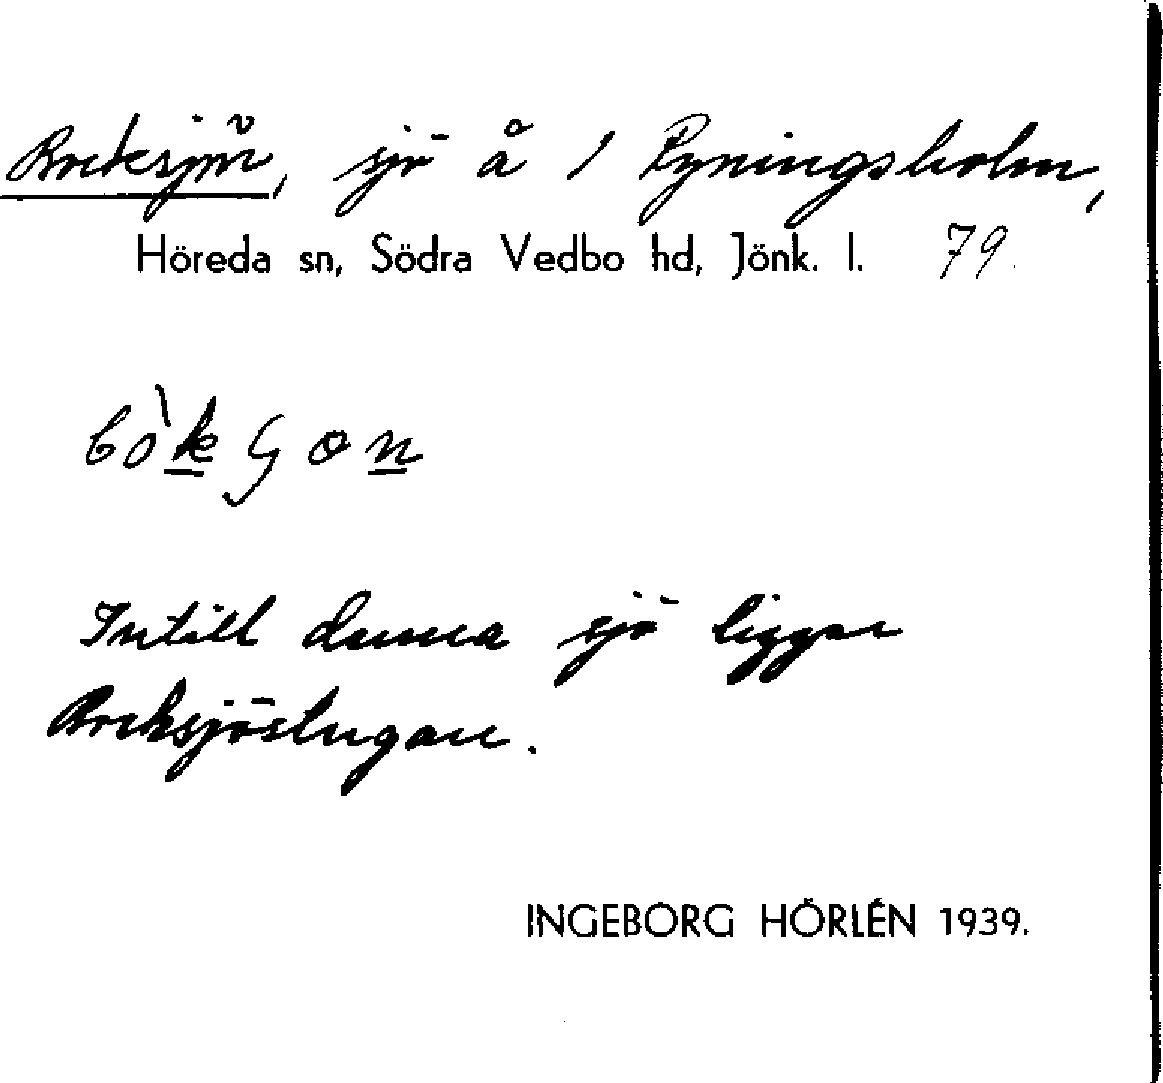 Bocksjön, sjö å 1 Ryningsholm,
Höreda sn, Södra Vedbo hd, Jönk. l. 79.
Intill denna sjö ligger
Bocksjöstugan.
INGEBORG HÖRLÉN 1939.